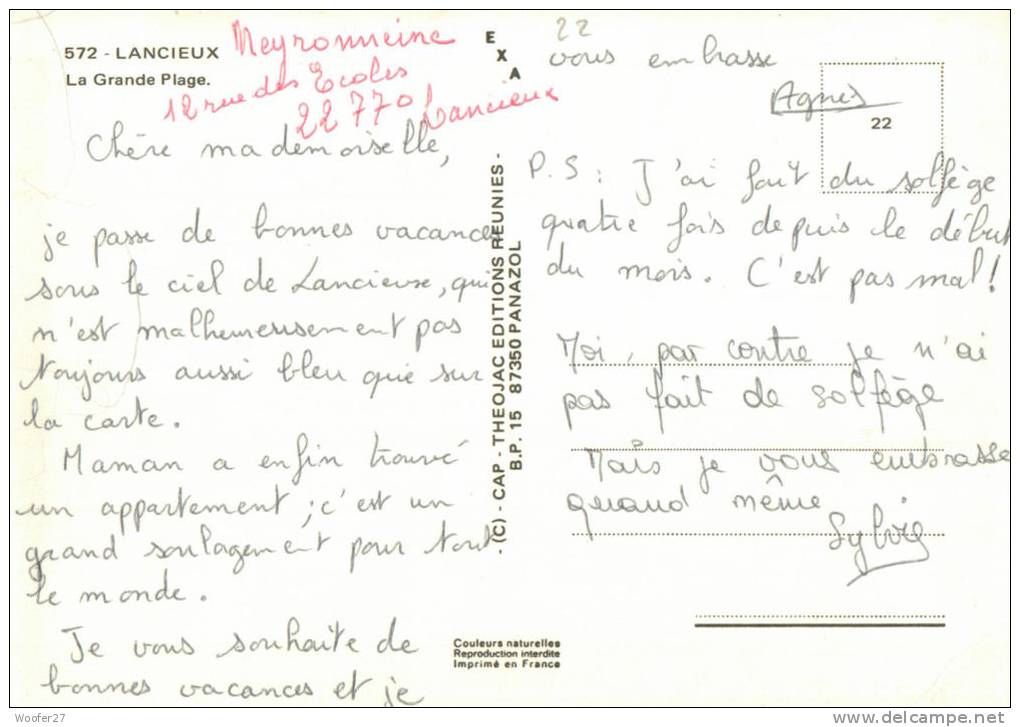 572 - LANCIEUX
La Grande Plage.
12 rue des Ecoles
22770 Lancieux
Chère mademoiselle,
je passe de bonnes vacances
sous le ciel de Lancieux, qui
n'est malheureusement pas
toujours aussi bleu que sur
la carte.
Maman a enfin trouvé
un appartement ; c'est un
grand soulagement pour tout
le monde.
Je vous souhaite de
bonnes vacances et je
EXA
- (C) - CAP - THEOJAC EDITIONS REUNIES -
B.P. 15 87350 PANAZOL
Couleurs naturelles
Reproduction interdite
Imprimé en France
22
vous embrasse
Agnès
22
P.S : J'ai fait du solfège
quatre fois depuis le début
du mois. C'est pas mal !
Moi, par contre je n'ai
pas fait de solfège
Mais je vous embrasse
quand même
Sylvie
Woofer27
www.delcampe.net